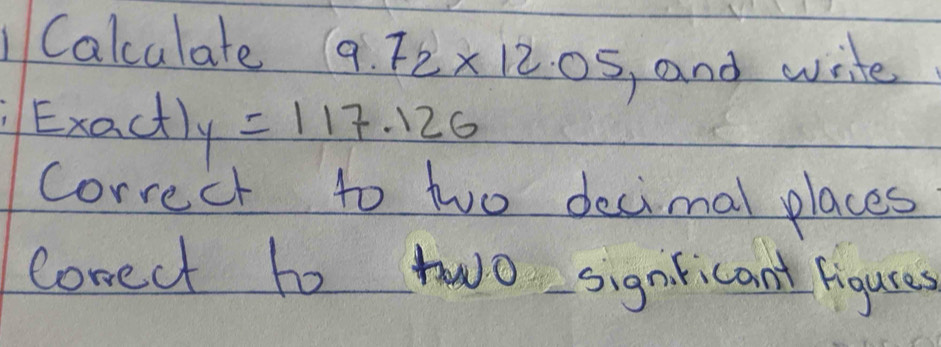 1 Calculate (9.72 × 12.05, and write
i Exactly = 117.126
Correct to two decimal places
Correct to two significant figures